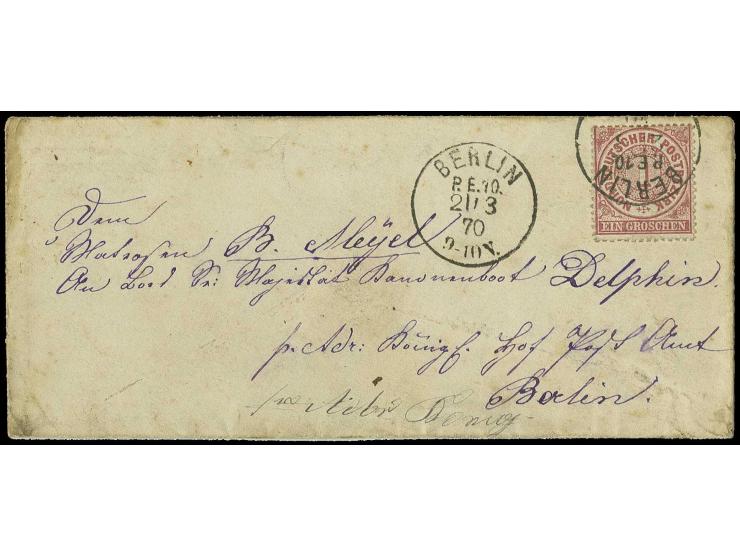 BERLIN
P.E.10.
21 3
70
9-10V.
BERLIN
P.E.10
NORDDEUTSCHER POSTBEZIRK
1
EIN GROSCHEN
Dem
Matrosen B. Meyel
An Bord Sr: Majestät Kanonenboot Delphin.
p. Adr: Königl. Hof Post Amt
Berlin.
per Adr Koenig